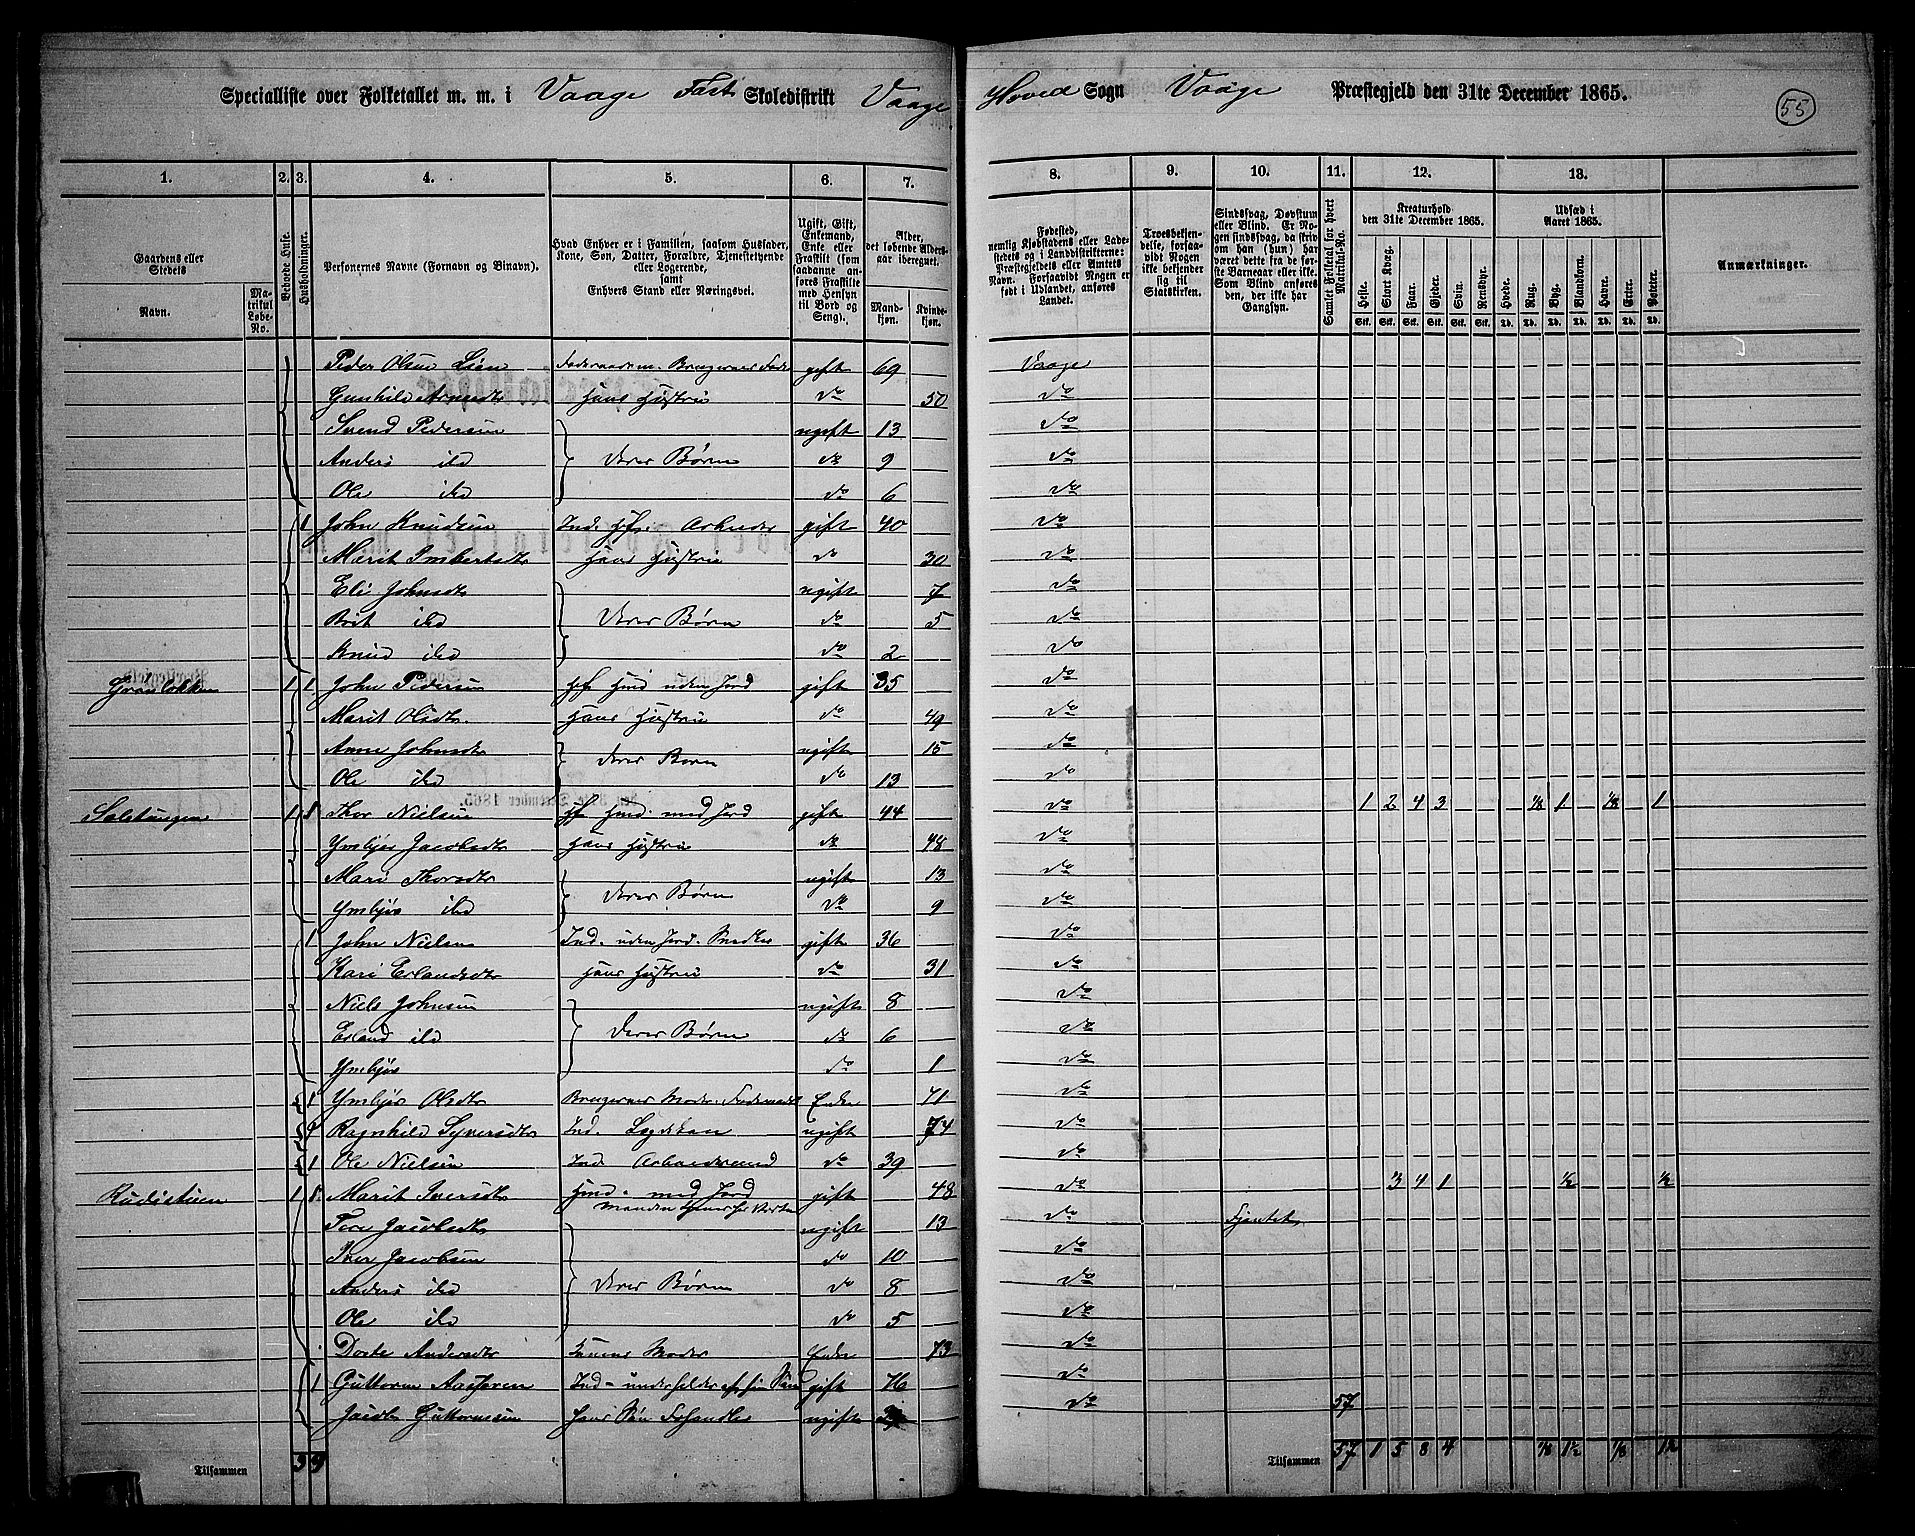 Specialliste over Folketallet m. m. i Vaage Fast Skoledistrikt Vaage Hoved Sogn Vaage Præstegjeld den 31te December 1865.
55
1. 2. 3. 4. 5. 6. 7. 8. 9. 10. 11. 12. 13.
Gaardens eller Stedets
Navn.
Matrikul Løbe-No.
Beboede Huse.
Husholdninger.
Personernes Navne (Fornavn og Binavn).
Hvad Enhver er i Familien, saasom Husfader, Kone, Søn, Datter, Forældre, Tjenestetyende eller Logerende, samt Enhvers Stand eller Næringsvei.
Ugift, Gift, Enkemand, Enke eller Fraskilt (som saadanne anføres Fraskilte med Hensyn til Bord og Seng).
Alder, det løbende Alders-aar iberegnet.
Mandkjøn.
Kvindekjøn.
Fødested, nemlig Kjøbstadens eller Ladestedets og i Landdistrikterne: Præstegjeldets eller Amtets Navn. Forsaavidt Nogen er født i Udlandet, anføres Landet.
Troesbekjendelse, forsaavidt Nogen ikke bekjender sig til Statskirken.
Sindssvag, Døvstum eller Blind. Er Nogen sindssvag, da skriv om han (hun) har været dette fra de første Barneaar eller ikke. Som Blind anføres den, der ikke har Gangsyn.
Samlet Folketal for hvert Matrikul-No.
Kreaturhold den 31te December 1865.
Heste. Stort Kvæg. Faar. Gjeder. Svin. Rensdyr.
Udsæd i Aaret 1865.
Hvede. Rug. Byg. Blandkorn. Havre. Erter. Poteter.
Anmærkninger.
Peder Olsen Lien gift 69 Vaage
Gunhild Hans Hustru do 50 do
Svend Pedersen ugift 13 do
Anders ibd deres Børn do 9 do
Ole ibd do 6 do
1 John Knudsen Ind. Hf. Arbeider gift 40 do
Marit Imbertsdtr Hans Hustru do 30 do
Eli Johnsdtr ugift 7 do
Brit ibd deres Børn do 5 do
Knud ibd do 2 do
1 1 John Pedersen Hf Hmd uden Jord gift 35 do
Marit Olsdtr. Hans Hustru do 49 do
Anne Johnsdtr ugift 15 do
Ole ibd deres Børn do 13 do
1 1 Thor Nielsen Hf Hmd. med Jord gift 44 do 1 2 4 3 1/8 1 1/8 1
Ymbjør Jacobsdtr Hans Hustru do 48 do
Mari Thorsdtr ugift 13 do
Ymbjør ibd deres Børn do 9 do
1 John Nielsen Ind. uden Jord. Snedker gift 36 do
Kari Erlandsdtr Hans Hustru do 31 do
Niels Johnsen ugift 8 do
Erland ibd deres Børn do 6 do
Ymbjør do 1 do
1 Ymbjør Olsdtr Brugerens Moder. Enke 71 do
Ragnhild Syversdtr Ind. ugift 74 do
1 Ole Nielsen Ind. do 39 do
Rudistuen 1 1 Marit Iversdtr Hmd. med Jord gift 48 do 3 4 1 1/2 1/2
Jacobsdtr ugift 13 do
Iver Jacobsen do 10 do
Anders ibd deres Børn do 8 do
Ole ibd do 5 do
Andersdtr Konens Moder Enke 73 do
1 Guttorm Ind. gift 76 do
Jacob Guttormsen Hans Søn ugift do 57
Tilsammen 3 9 Tilsammen 57 1 5 8 4 1/8 1 1/2 1/8 1 1/2